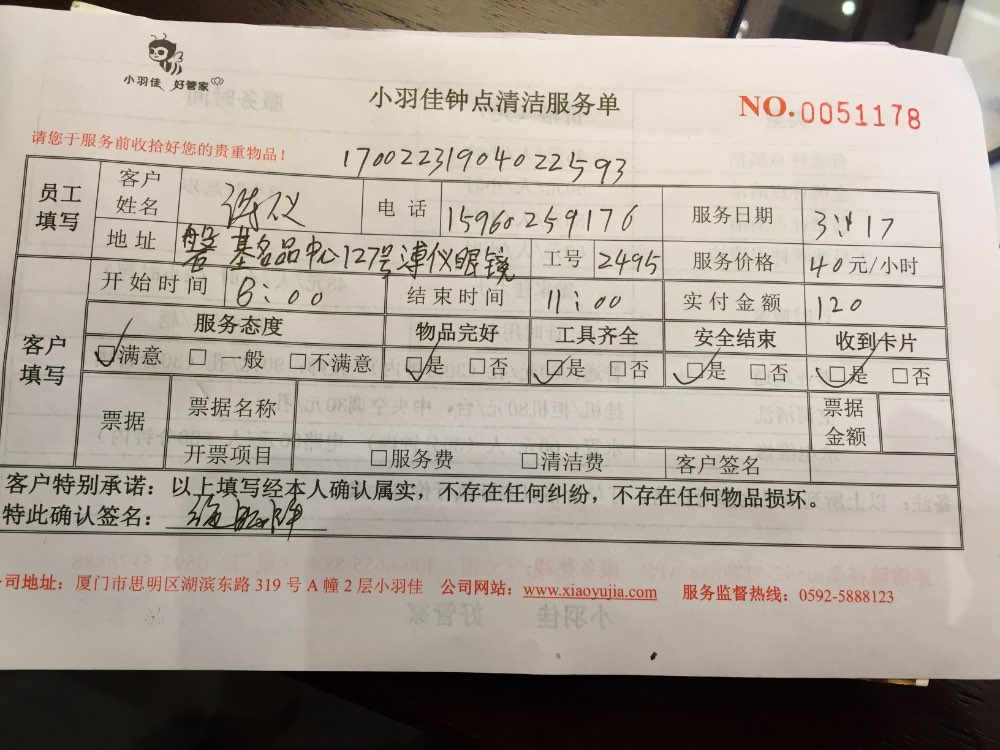 小羽佳 好管家
小羽佳钟点清洁服务单
NO.0051178
请您于服务前收拾好您的贵重物品！
17002231904022593
员工填写 客户姓名 电话 15960259176 服务日期 3 17
地址 磐基名品中心127号溥仪眼镜 工号 2495 服务价格 40元/小时
客户填写 开始时间 8:00 结束时间 11:00 实付金额 120
服务态度 物品完好 工具齐全 安全结束 收到卡片
☑满意 □一般 □不满意 ☑是 □否 ☑是 □否 ☑是 □否 ☑是 □否
票据 票据名称 票据金额
开票项目 □服务费 □清洁费 客户签名
客户特别承诺：以上填写经本人确认属实，不存在任何纠纷，不存在任何物品损坏。
特此确认签名：
司地址：厦门市思明区湖滨东路 319 号 A 幢 2 层小羽佳 公司网站：www.xiaoyujia.com 服务监督热线：0592-5888123